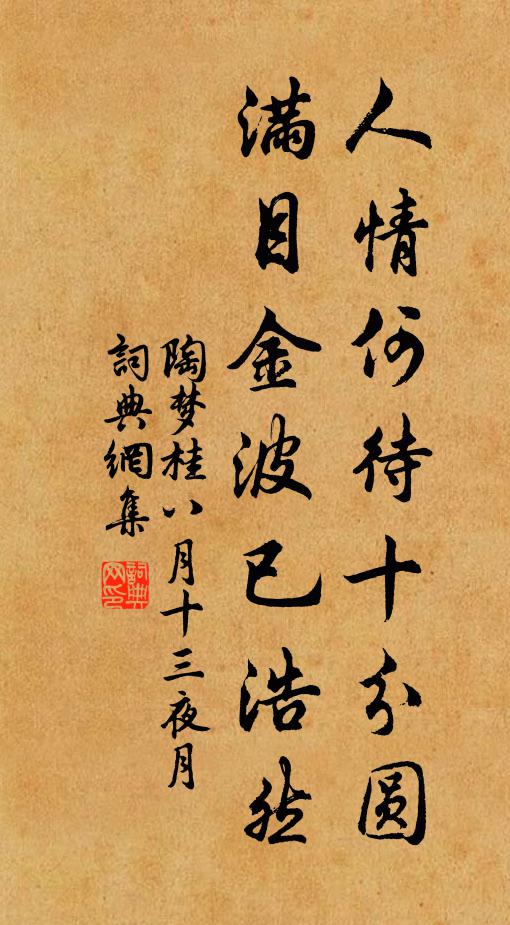 人情何待十分圆
满目金波已浩然
陶梦桂八月十三夜月
詞典網集
詞典网印